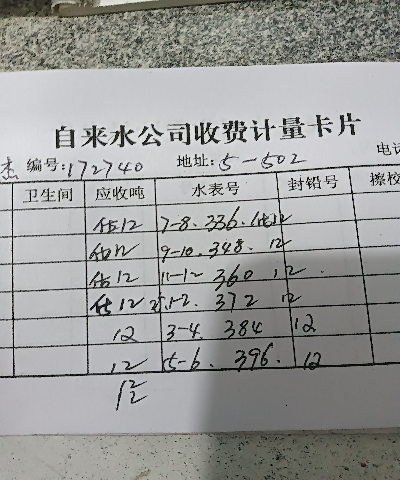 自来水公司收费计量卡片
杰 编号:172740 地址:5-502 电话
卫生间 应收吨 水表号 封铅号 擦校
估12 7-8. 336. 估12
估12 9-10. 348. 12
估12 11-12 360 12
估12 1-2. 372 12
12 3-4. 384 12
12 5-6. 396. 12
12